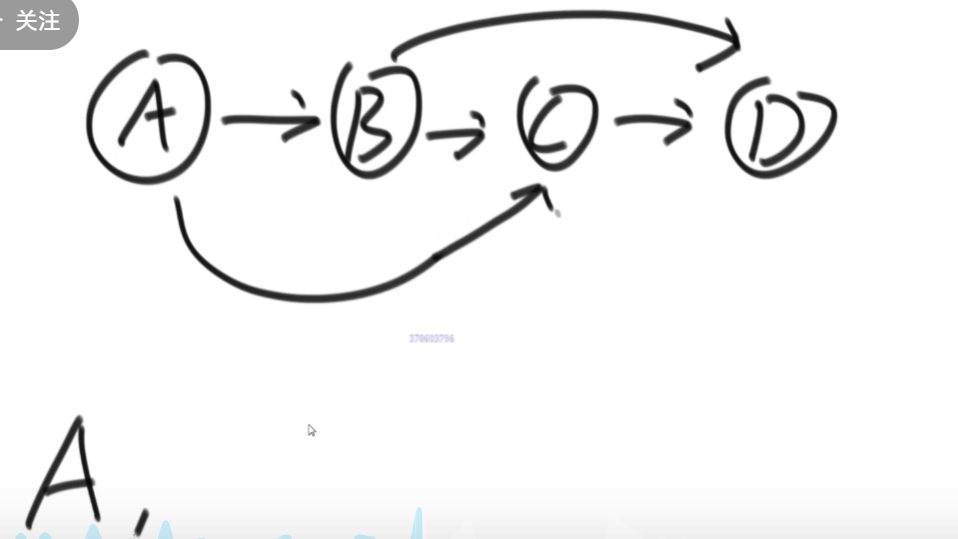 关注
A B C D
370603796
A,